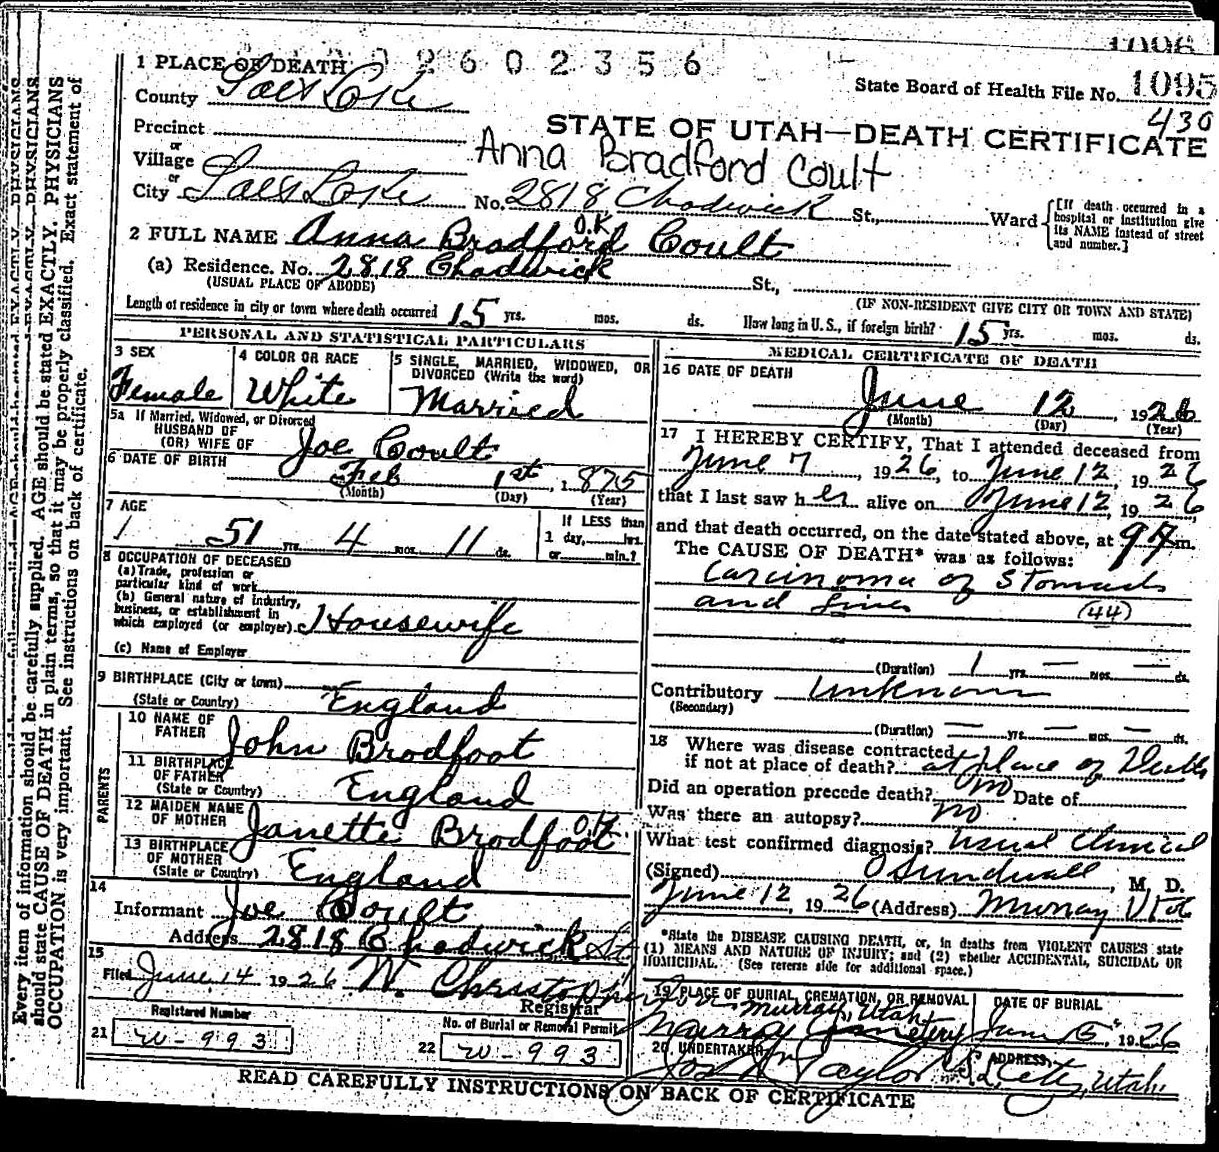 1096
2 6 0 2 3 5 6
1 PLACE OF DEATH
State Board of Health File No. 1095
County Salt Lake
430
Precinct
STATE OF UTAH—DEATH CERTIFICATE
or
Village
Anna Bradford Coult
or
City Salt Lake No. 2818 Chadwick St., Ward
[If death occurred in a
hospital or institution give
its NAME instead of street
and number.]
O.K
2 FULL NAME Anna Bradford Coult
(a) Residence. No. 2818 Chadwick St.,
(USUAL PLACE OF ABODE)
(IF NON-RESIDENT GIVE CITY OR TOWN AND STATE)
Length of residence in city or town where death occurred 15 yrs. mos. ds. How long in U. S., if foreign birth? 15 yrs. mos. ds.
PERSONAL AND STATISTICAL PARTICULARS
3 SEX
Female
4 COLOR OR RACE
White
5 SINGLE, MARRIED, WIDOWED, OR
DIVORCED (Write the word)
Married
5a If Married, Widowed, or Divorced
HUSBAND OF
(OR) WIFE OF Joe Coult
6 DATE OF BIRTH Feb 1st, 1875
(Month) (Day) (Year)
7 AGE
1 51 yrs. 4 mos. 11 ds.
If LESS than
1 day, hrs.
or min.?
8 OCCUPATION OF DECEASED
(a) Trade, profession or
particular kind of work
(b) General nature of industry,
business, or establishment in
which employed (or employer). Housewife
(c) Name of Employer
9 BIRTHPLACE (City or town)
(State or Country) England
PARENTS
10 NAME OF
FATHER John Brodfoot
11 BIRTHPLACE
OF FATHER
(State or Country) England
12 MAIDEN NAME
OF MOTHER Janette Brodfoot O.K.
13 BIRTHPLACE
OF MOTHER
(State or Country) England
14
Informant Joe Coult
Address 2818 Chadwick St
15
Filed June 14 1926 W. Christopher
Registrar
Registered Number
21 W-993
No. of Burial or Removal Permit
22 W-993
MEDICAL CERTIFICATE OF DEATH
16 DATE OF DEATH
June 12, 1926
(Month) (Day) (Year)
17 I HEREBY CERTIFY, That I attended deceased from
June 7, 1926, to June 12, 1926
that I last saw her alive on June 12, 1926
and that death occurred, on the date stated above, at 9 m.
The CAUSE OF DEATH* was as follows:
Carcinoma of Stomach
and Liver (44)
(Duration) 1 yrs. — mos. — ds.
Contributory Unknown
(Secondary)
(Duration) — yrs. — mos. — ds.
18 Where was disease contracted
if not at place of death? at place of Death
Did an operation precede death? no Date of
Was there an autopsy? no
What test confirmed diagnosis? Usual Clinical
(Signed) O Sundwall, M. D.
June 12, 1926 (Address) Murray Utah
*State the DISEASE CAUSING DEATH, or, in deaths from VIOLENT CAUSES state
(1) MEANS AND NATURE OF INJURY; and (2) whether ACCIDENTAL, SUICIDAL OR
HOMICIDAL. (See reverse side for additional space.)
19 PLACE OF BURIAL, CREMATION, OR REMOVAL
Murray, Utah
Murray Cemetery
DATE OF BURIAL
June 15", 1926
20 UNDERTAKER
Jos Wm Taylor
ADDRESS
S. L. City, Utah
READ CAREFULLY INSTRUCTIONS ON BACK OF CERTIFICATE
Every item of information should be carefully supplied. AGE should be stated EXACTLY. PHYSICIANS
should state CAUSE OF DEATH in plain terms, so that it may be properly classified. Exact statement of
OCCUPATION is very important. See instructions on back of certificate.